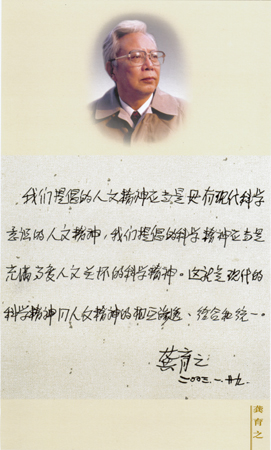 我们提倡的人文精神应当是具有现代科学
意识的人文精神，我们提倡的科学精神应当是
充满高度人文关怀的科学精神。这就是现代的
科学精神同人文精神的相互渗透、结合和统一。
龚育之
二〇〇三.一.廿九
龚育之